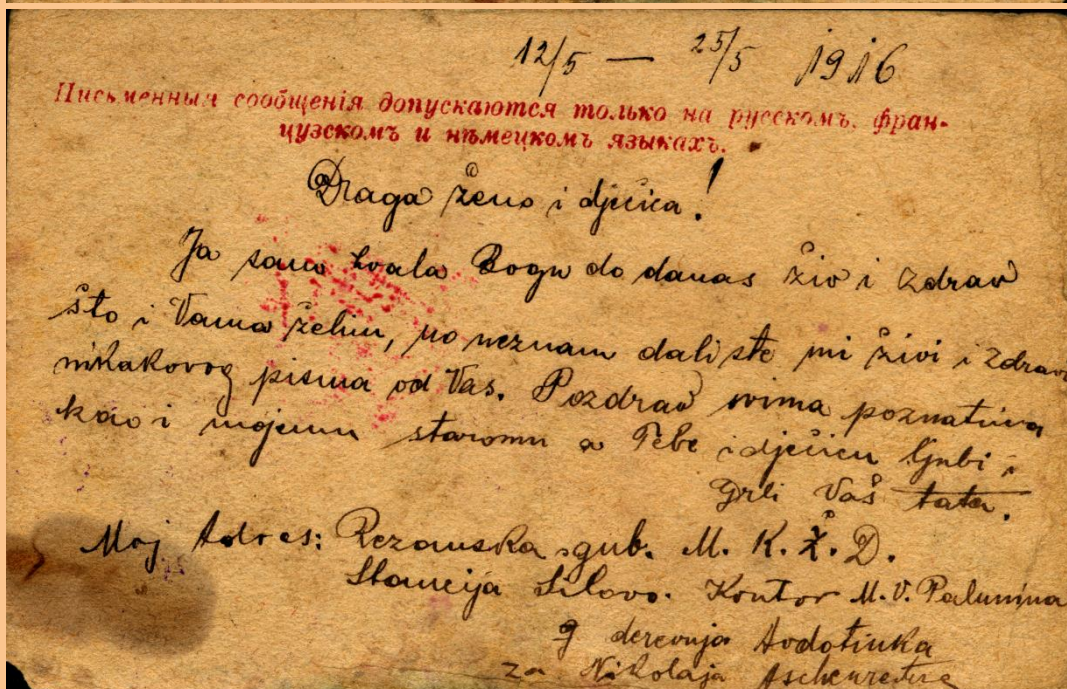 12/5 — 25/5 1916
Письменныя сообщенія допускаются только на русскомъ, фран-
цузскомъ и нѣмецкомъ языкахъ.
Draga ženo i dječica!
Ja sam hvala Bogu do danas živ i zdrav
što i Vama želim, no neznam dali ste mi živi i zdravi
nikakovog pisma od Vas. Pozdrav svima poznatima
kao i mojemu staromu a Tebe i dječicu ljubi i
grli Vaš tata.
Moj Adres: Rezanska gub. M. K. Ž. D.
Stancija Šilovo. Kontor M. V. Palunina
derevnja Avdotinka
za Nikolaja